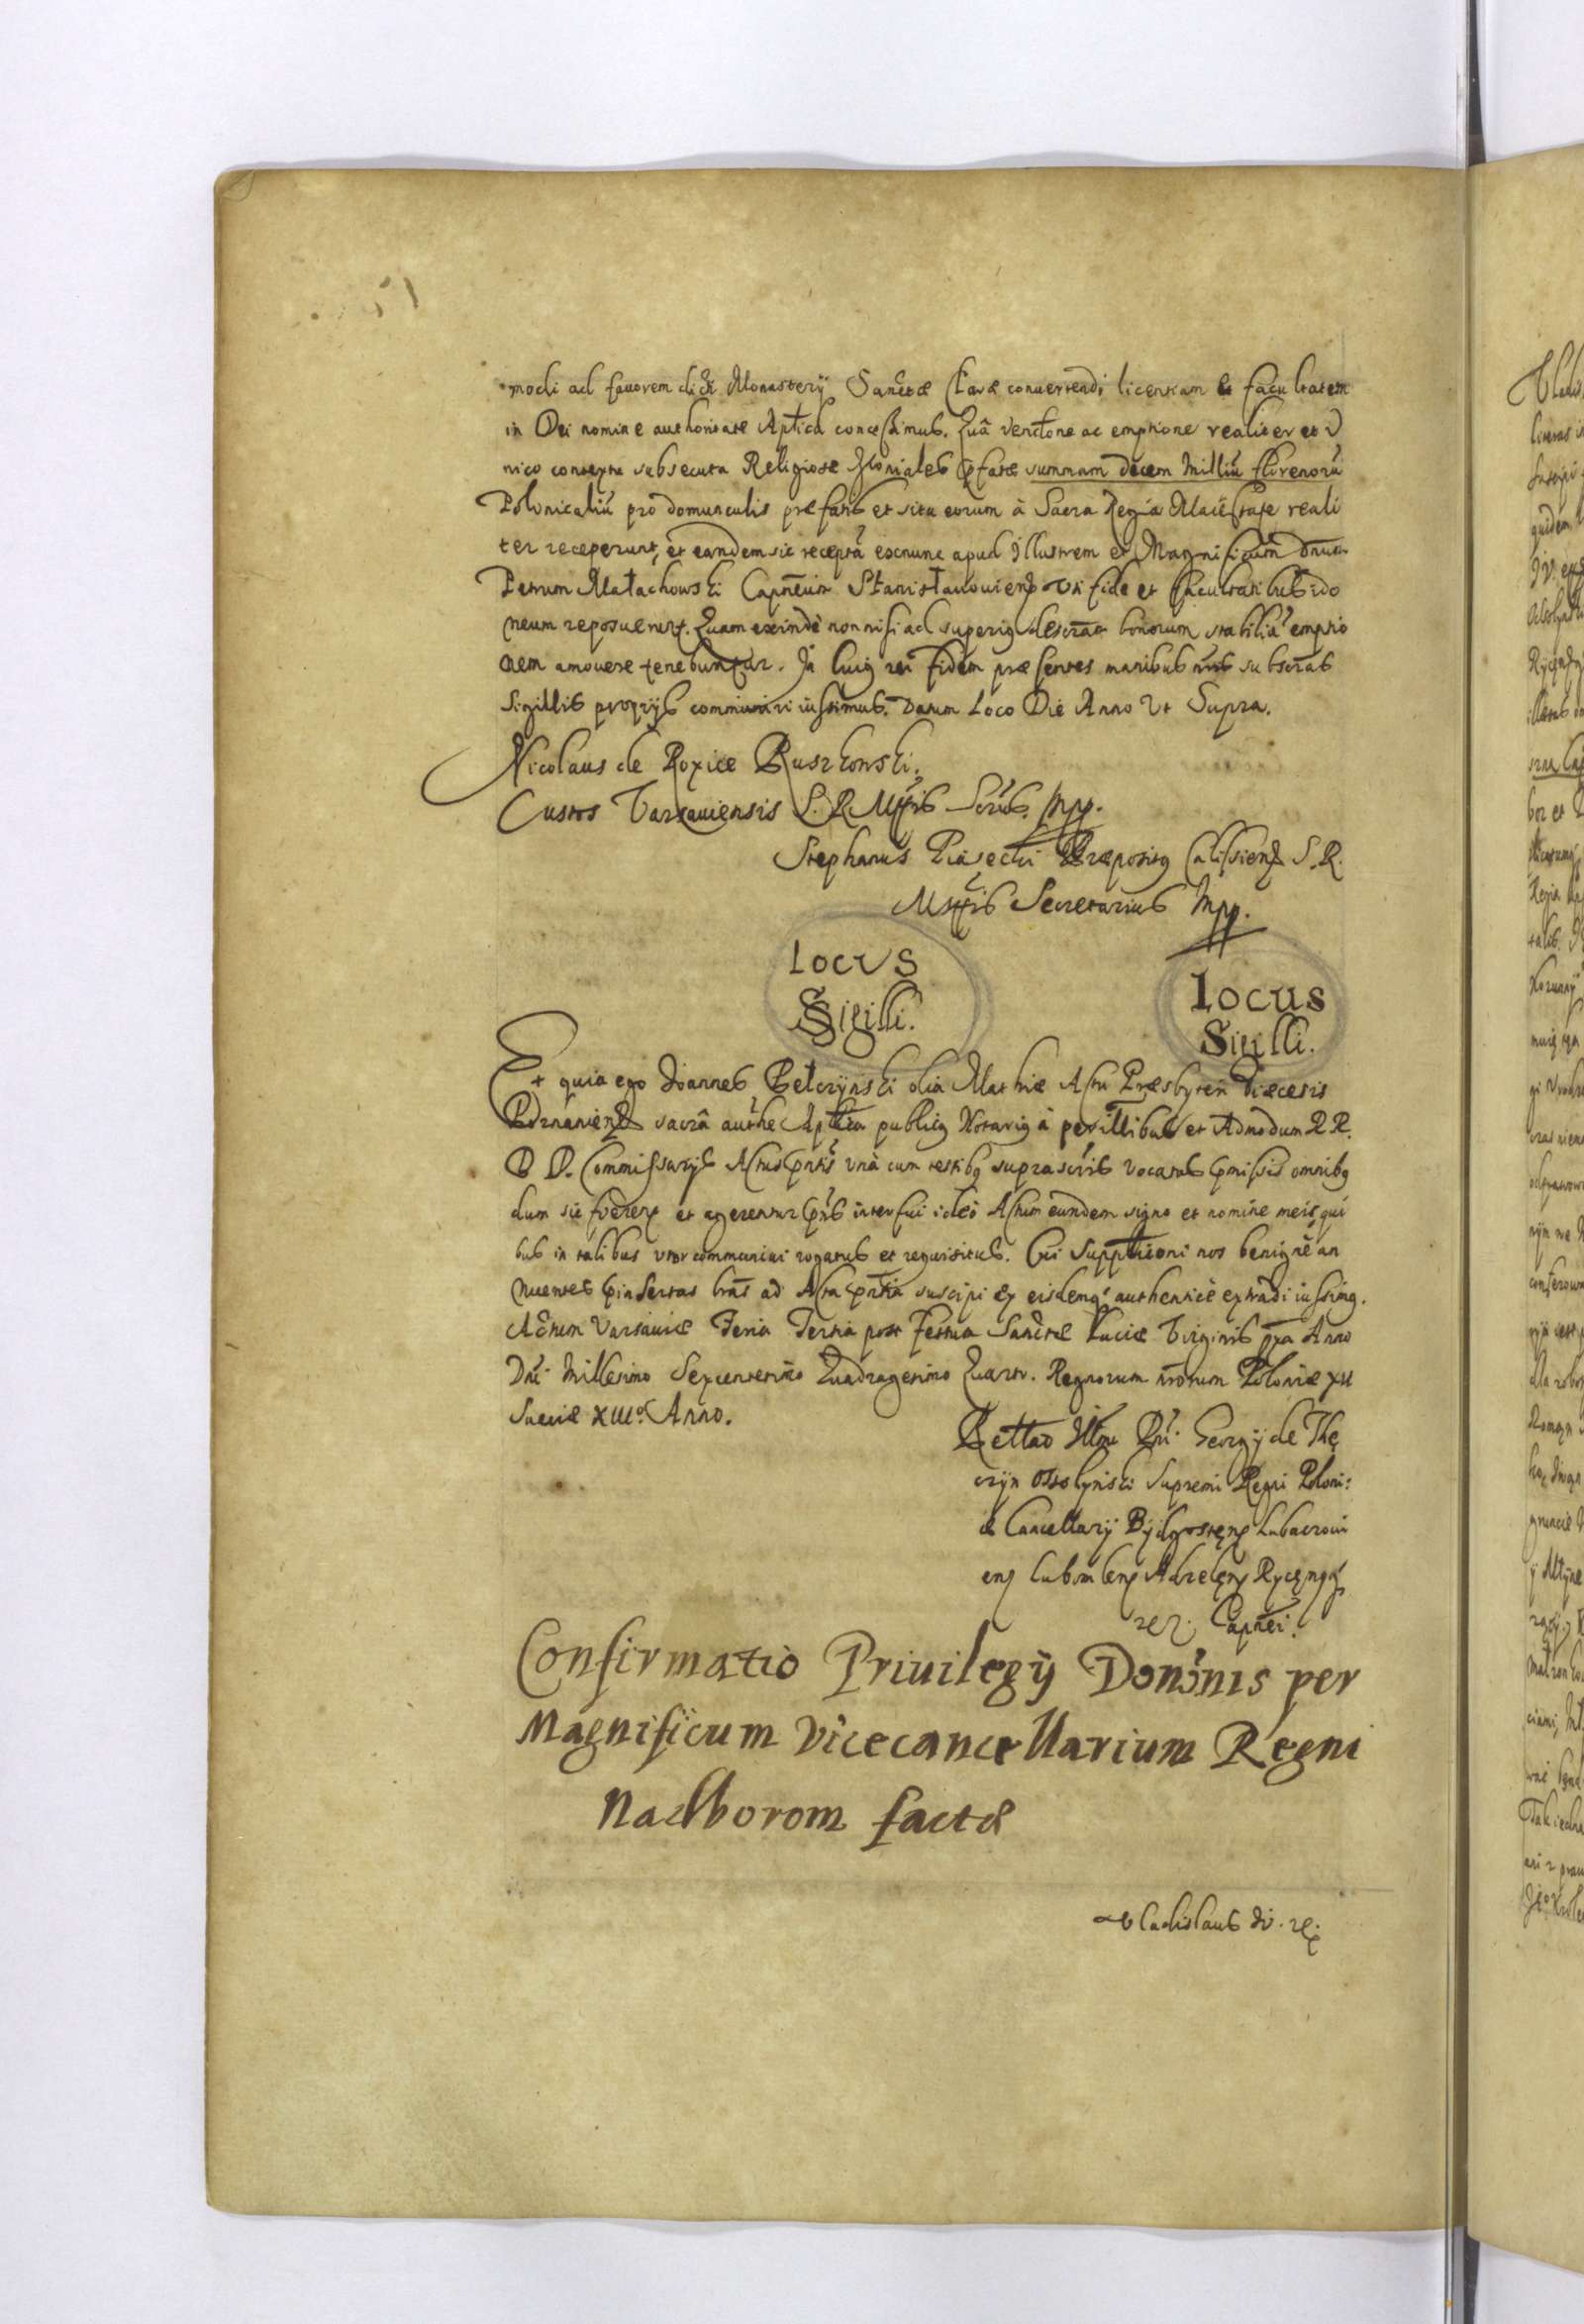 modi ad fauorem dicti Monasterij Sanctæ Claræ conuertendi licentiam et facultatem
in Dei nomine authoritate Aptica concessimus. Quâ venditone ac emptione realiter et v
nico contextu subsecuta Religiosæ Moniales pfatæ summam decem Milliũ florenorũ
Polonicaliũ pro domunculis præfatis et situ eorum à Sacra Regia Maiestate reali
ter receperunt, et eandem sic receptã exnunc apud Illustrem et Magnificum Dnum
Petrum Małachowski Capneum Stanisłauouiens vti fide et facultatibus ido
neum reposuerunt. Quam exindè non nisi ad superius descrãt bonorum stabiliũ emptio
nem amouere tenebuntur. In cuius rei fidem præsentes manibus nris subscrãs
Sigillis proprijs communiri iussimus. Datum Loco Die Anno Vt Supra.
Nicolaus de Roxice Ruszkowski.
Custos Varsauiensis S. R. Mttis Scrius. Mpp.
Stephanus Piasecki Præpositus Calissiens S. R.
Mttis Secretarius Mpp.
Locus
Sigilli.
Locus
Sigilli.
Et quia ego Joannes Bełczyński olim Mathiæ Presbyter Diæcesis
Poznaniens sacrâ authe Aptica publicus Notarius à perillibus et Admodum R R.
D D. Commissarijs Actus pntis vnà cum testibus suprascriis vocatus pmissis omnibus
dum sic fierent et agerentur pns interfui ideò Actum eundem signo et nomine meis qui
bus in talibus vtor communiui rogatus et requisitus. Cui Suppltioni nos benignè an
nuentes pinsertas lras ad Acta pntia suscipi ex eisdemq authenticè extradi iussimus.
Actum Varsauiæ Feria Tertia post Festum Sanctæ Luciæ Virginis pxa Anno
Dni Millesimo Sexcentesimo Quadragesimo Quarto. Regnorum nrorum Poloniæ XII
Sueciæ XIIIo Anno.
Rellao Illmi Dni Georgij de The
czyn Ossolynski Supremi Regni Poloni:
æ Cancellarij Bydgostens Lubaczoui
ens Lubomlens Adzelens Rycens
rez. Capnei.
Confirmatio Priuilegÿ Donònis per
Magnificum Vicecancellarium Regni
Nadborom factæ
Vladislaus IV. rex